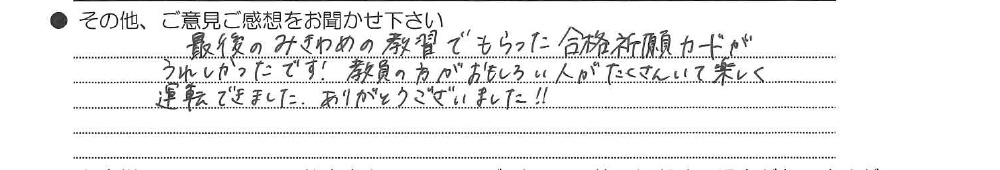 ● その他、ご意見ご感想をお聞かせ下さい
最後のみきわめの教習でもらった合格祈願カードが
うれしかったです! 教員の方がおもしろい人がたくさんいて楽しく
運転できました. ありがとうございました!!